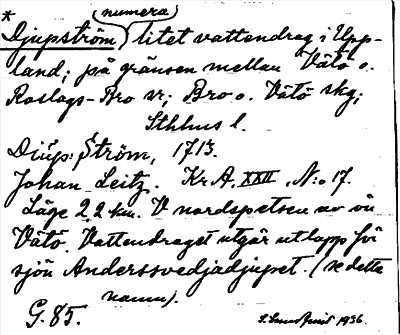 (numera)
* Djupström, litet vattendrag i Upp-
land; på gränsen mellan Vätö o.
Roslags-Bro sr; Bro o. Vätö skg;
Sthlms l.
Diup: Ström, 1713.
Johan Leitz. Kr. A, XXII, N:o 17.
Läge 2,2 km. V nordspetsen av ön
Vätö. Vattendraget utgår utlopp för
sjön Anderssvedjadjupet. (se detta
namn).
G. 85. 1936.